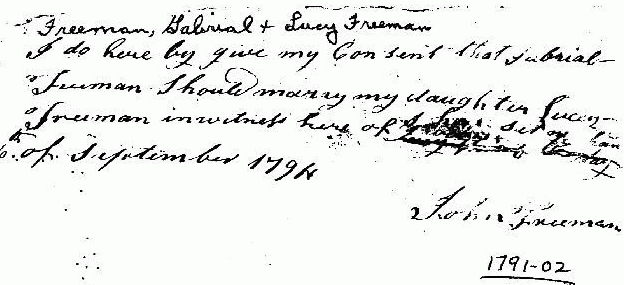 Freeman, Gabrial + Lucy Freeman
I do here by give my Consent that Gabrial
Freeman Should marry my daughter Lucy
Freeman in witness here of
of September 1794
John Freeman
1791-02